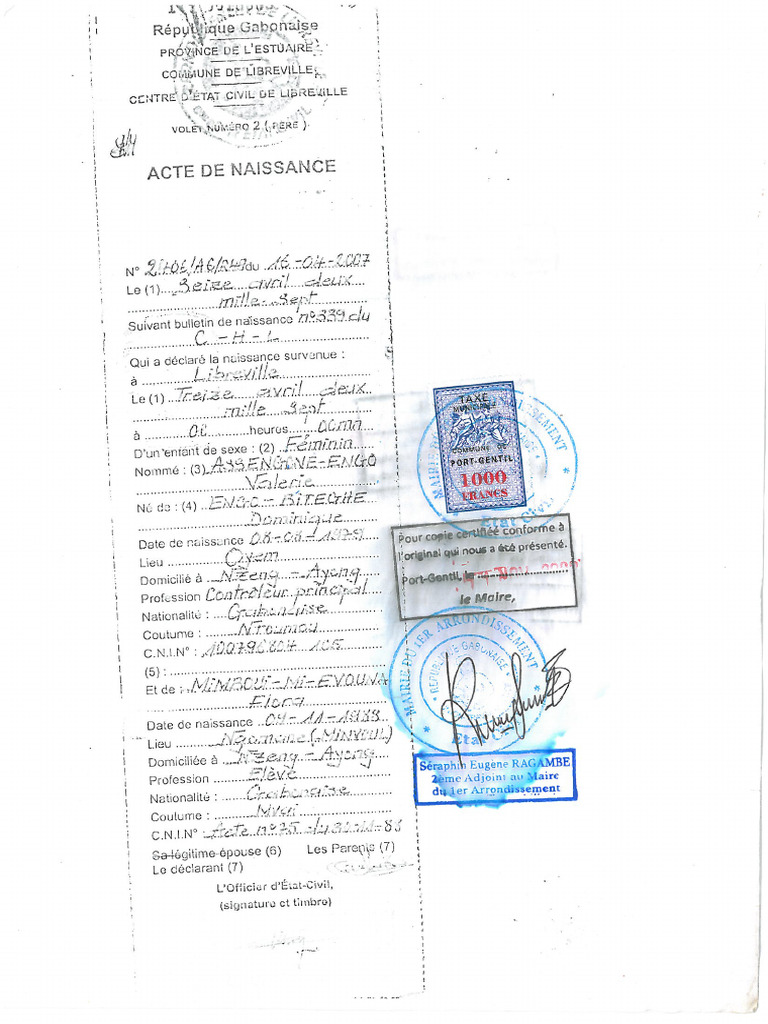 République Gabonaise
PROVINCE DE L'ESTUAIRE
COMMUNE DE LIBREVILLE
CENTRE D'ÉTAT CIVIL DE LIBREVILLE
VOLET NUMÉRO 2 ( PERE )
ACTE DE NAISSANCE
N° du 16-04-2007
Le (1) Seize avril deux
mille sept
Suivant bulletin de naissance n°339 du
C - H - L
Qui a déclaré la naissance survenue :
à Libreville
Le (1) Treize avril deux
mille sept
à 00 heures 00mn
D'un enfant de sexe : (2) Féminin
Nommé : (3) ASSENGONE-ENGO
Valerie
Né de : (4) ENGO - BITEGHE
Dominique
Date de naissance 08-08-1979
Lieu Oyem
Domicilié à NZeng - Ayong
Profession Contrôleur principal
Nationalité : Gabonaise
Coutume : NToumou
C.N.I.N° :
(5) :
Et de : MIMBOUI-MI-EVOUNA
Flora
Date de naissance 04-11-1988
Lieu (MINVOUL)
Domiciliée à NZeng - Ayong
Profession Elève
Nationalité : Gabonaise
Coutume :
C.N.I.N° : Acte n°75 du -88
Sa légitime épouse (6) Les Parents (7)
Le déclarant (7)
L'Officier d'État-Civil,
(signature et timbre)
TAXE
MUNICIPALE
COMMUNE DE
PORT-GENTIL
1000
FRANCS
MAIRIE DU ARRONDISSEMENT
Etat Civil
Pour copie certifiée conforme à
l'original qui nous a été présenté.
Port-Gentil, le
le Maire,
MAIRIE DU 1ER ARRONDISSEMENT
REPUBLIQUE GABONAISE
Etat Civil
Séraphin Eugène RAGAMBE
2ème Adjoint au Maire
du 1er Arrondissement